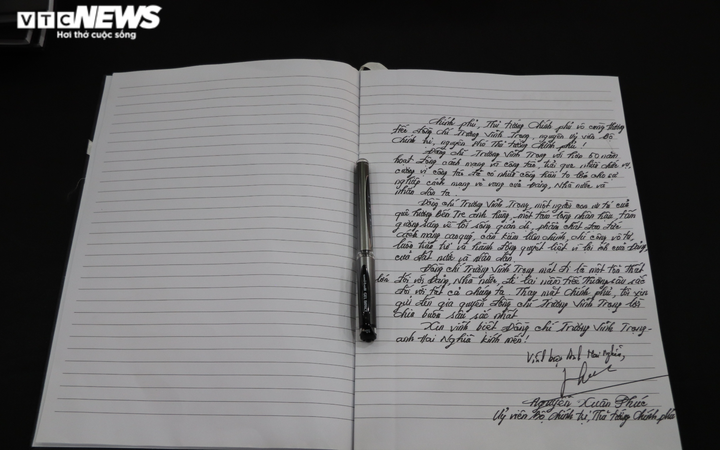 VTC NEWS
Hơi thở cuộc sống
Chính phủ, Thủ tướng Chính phủ vô cùng thương
tiếc đồng chí Trương Vĩnh Trọng, nguyên Uỷ viên Bộ
Chính trị, nguyên Phó Thủ tướng Chính phủ!
Đồng chí Trương Vĩnh Trọng với hơn 50 năm
hoạt động cách mạng và công tác, trải qua nhiều chức vụ,
cương vị công tác đã có nhiều cống hiến to lớn cho sự
nghiệp cách mạng vẻ vang của Đảng, Nhà nước và
nhân dân ta.
Đồng chí Trương Vĩnh Trọng, một người con ưu tú của
quê hương Bến Tre anh hùng, một tấm lòng nhân hậu, tấm
gương sáng về lối sống giản dị, phẩm chất đạo đức
cách mạng cao quý, cần kiệm liêm chính, chí công vô tư,
luôn trăn trở và hành động quyết liệt vì lợi ích của Đảng,
của đất nước và nhân dân.
Đồng chí Trương Vĩnh Trọng mất đi là một tổn thất
lớn đối với Đảng, Nhà nước, để lại niềm tiếc thương sâu sắc
đối với tất cả chúng ta. Thay mặt Chính phủ, tôi xin
gửi đến gia quyến đồng chí Trương Vĩnh Trọng lời
chia buồn sâu sắc nhất.
Xin vĩnh biệt đồng chí Trương Vĩnh Trọng -
anh Hai Nghĩa kính mến!
Vĩnh biệt Anh Hai Nghĩa,
Nguyễn Xuân Phúc
Uỷ viên Bộ Chính trị, Thủ tướng Chính phủ